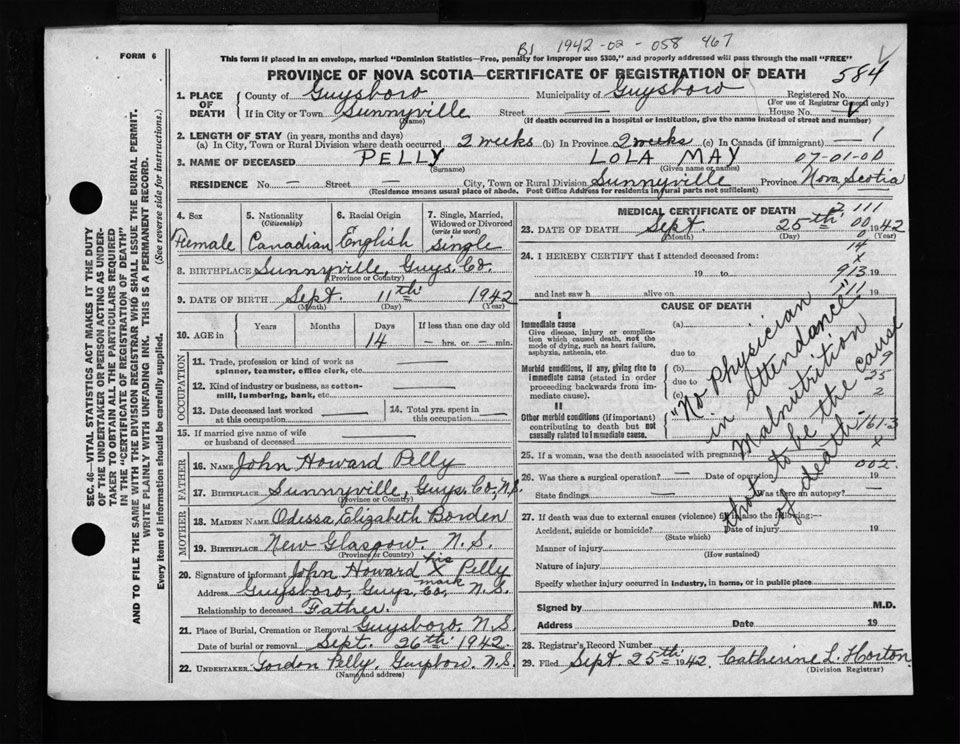 B1 1942-02-058 467
FORM 6
This form if placed in an envelope, marked "Dominion Statistics—Free, penalty for improper use $300," and properly addressed will pass through the mail "FREE"
PROVINCE OF NOVA SCOTIA—CERTIFICATE OF REGISTRATION OF DEATH 584
1. PLACE OF DEATH County of Guysboro Municipality of Guysboro Registered No.
(For use of Registrar General only)
If in City or Town Sunnyville Street — House No.
(Name) (If death occurred in a hospital or institution, give the name instead of street and number)
2. LENGTH OF STAY (in years, months and days)
(a) In City, Town or Rural Division where death occurred 2 weeks (b) In Province 2 weeks (c) In Canada (if immigrant) — 1
3. NAME OF DECEASED PELLY LOLA MAY 07-01-00
(Surname) (Given name or names)
RESIDENCE No. — Street — City, Town or Rural Division Sunnyville Province Nova Scotia
(Residence means usual place of abode. Post Office Address for residents in rural parts not sufficient)
4. Sex Female
5. Nationality (Citizenship) Canadian
6. Racial Origin English
7. Single, Married, Widowed or Divorced (write the word) Single
8. BIRTHPLACE Sunnyville, Guys. Co.
(Province or Country)
9. DATE OF BIRTH Sept. 11th 1942
(Month) (Day) (Year)
10. AGE in Years Months Days 14 If less than one day old — hrs. or — min.
OCCUPATION
11. Trade, profession or kind of work as spinner, teamster, office clerk, etc. —
12. Kind of industry or business, as cotton-mill, lumbering, bank, etc. —
13. Date deceased last worked at this occupation —
14. Total yrs. spent in this occupation —
15. If married give name of wife or husband of deceased —
FATHER
16. NAME John Howard Pelly
17. BIRTHPLACE Sunnyville, Guys. Co. N.S.
(Province or Country)
MOTHER
18. MAIDEN NAME Odessa Elizabeth Borden
19. BIRTHPLACE New Glasgow. N.S.
(Province or Country)
20. Signature of informant John Howard his X mark Pelly
Address Guysboro, Guys. Co, N.S.
Relationship to deceased Father.
21. Place of Burial, Cremation or Removal Guysboro, N.S.
Date of burial or removal Sept. 26th 1942.
22. UNDERTAKER Gordon Pelly, Guysboro N.S.
(Name and address)
MEDICAL CERTIFICATE OF DEATH
23. DATE OF DEATH Sept. 25th 1942
(Month) (Day) (Year)
24. I HEREBY CERTIFY that I attended deceased from:
19 to 19
and last saw h alive on 19
CAUSE OF DEATH
I
Immediate cause
Give disease, injury or complication which caused death, not the mode of dying, such as heart failure, asphyxia, asthenia, etc.
(a)
due to
Morbid conditions, if any, giving rise to immediate cause (stated in order proceeding backwards from immediate cause).
(b)
due to
(c)
II
Other morbid conditions (if important) contributing to death but not causally related to immediate cause.
"No Physician
in attendance"
Malnutrition
to be the cause
of death
161-3
25. If a woman, was the death associated with pregnancy
002
26. Was there a surgical operation? — Date of operation 19
State findings — Was there an autopsy? —
27. If death was due to external causes (violence) fill in also the following:—
Accident, suicide or homicide? Date of injury 19
(State which)
Manner of injury
(How sustained)
Nature of injury
Specify whether injury occurred in industry, in home, or in public place
Signed by M.D.
Address Date 19
28. Registrar's Record Number
29. Filed Sept. 25th 1942. Catherine L. Horton
(Division Registrar)
SEC. 46—VITAL STATISTICS ACT MAKES IT THE DUTY
OF THE UNDERTAKER OR PERSON ACTING AS UNDER-
TAKER TO OBTAIN ALL THE PARTICULARS REQUIRED
IN THE "CERTIFICATE OF REGISTRATION OF DEATH"
AND TO FILE THE SAME WITH THE DIVISION REGISTRAR WHO SHALL ISSUE THE BURIAL PERMIT.
WRITE PLAINLY WITH UNFADING INK. THIS IS A PERMANENT RECORD.
Every item of information should be carefully supplied. (See reverse side for instructions.)